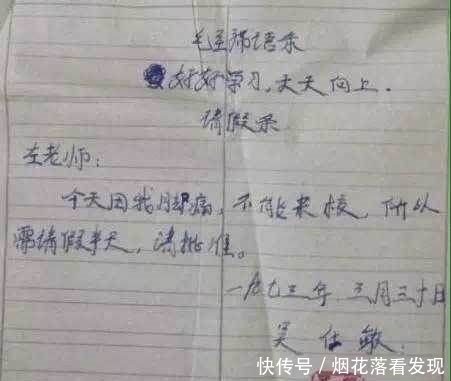 毛主席语录
好好学习,天天向上.
请假条
左老师:
今天因我痛,不能来校,所以
需请假半天,请批准。
一九七三年 三月三十日
吴仕敏.
快传号/烟花落看发现